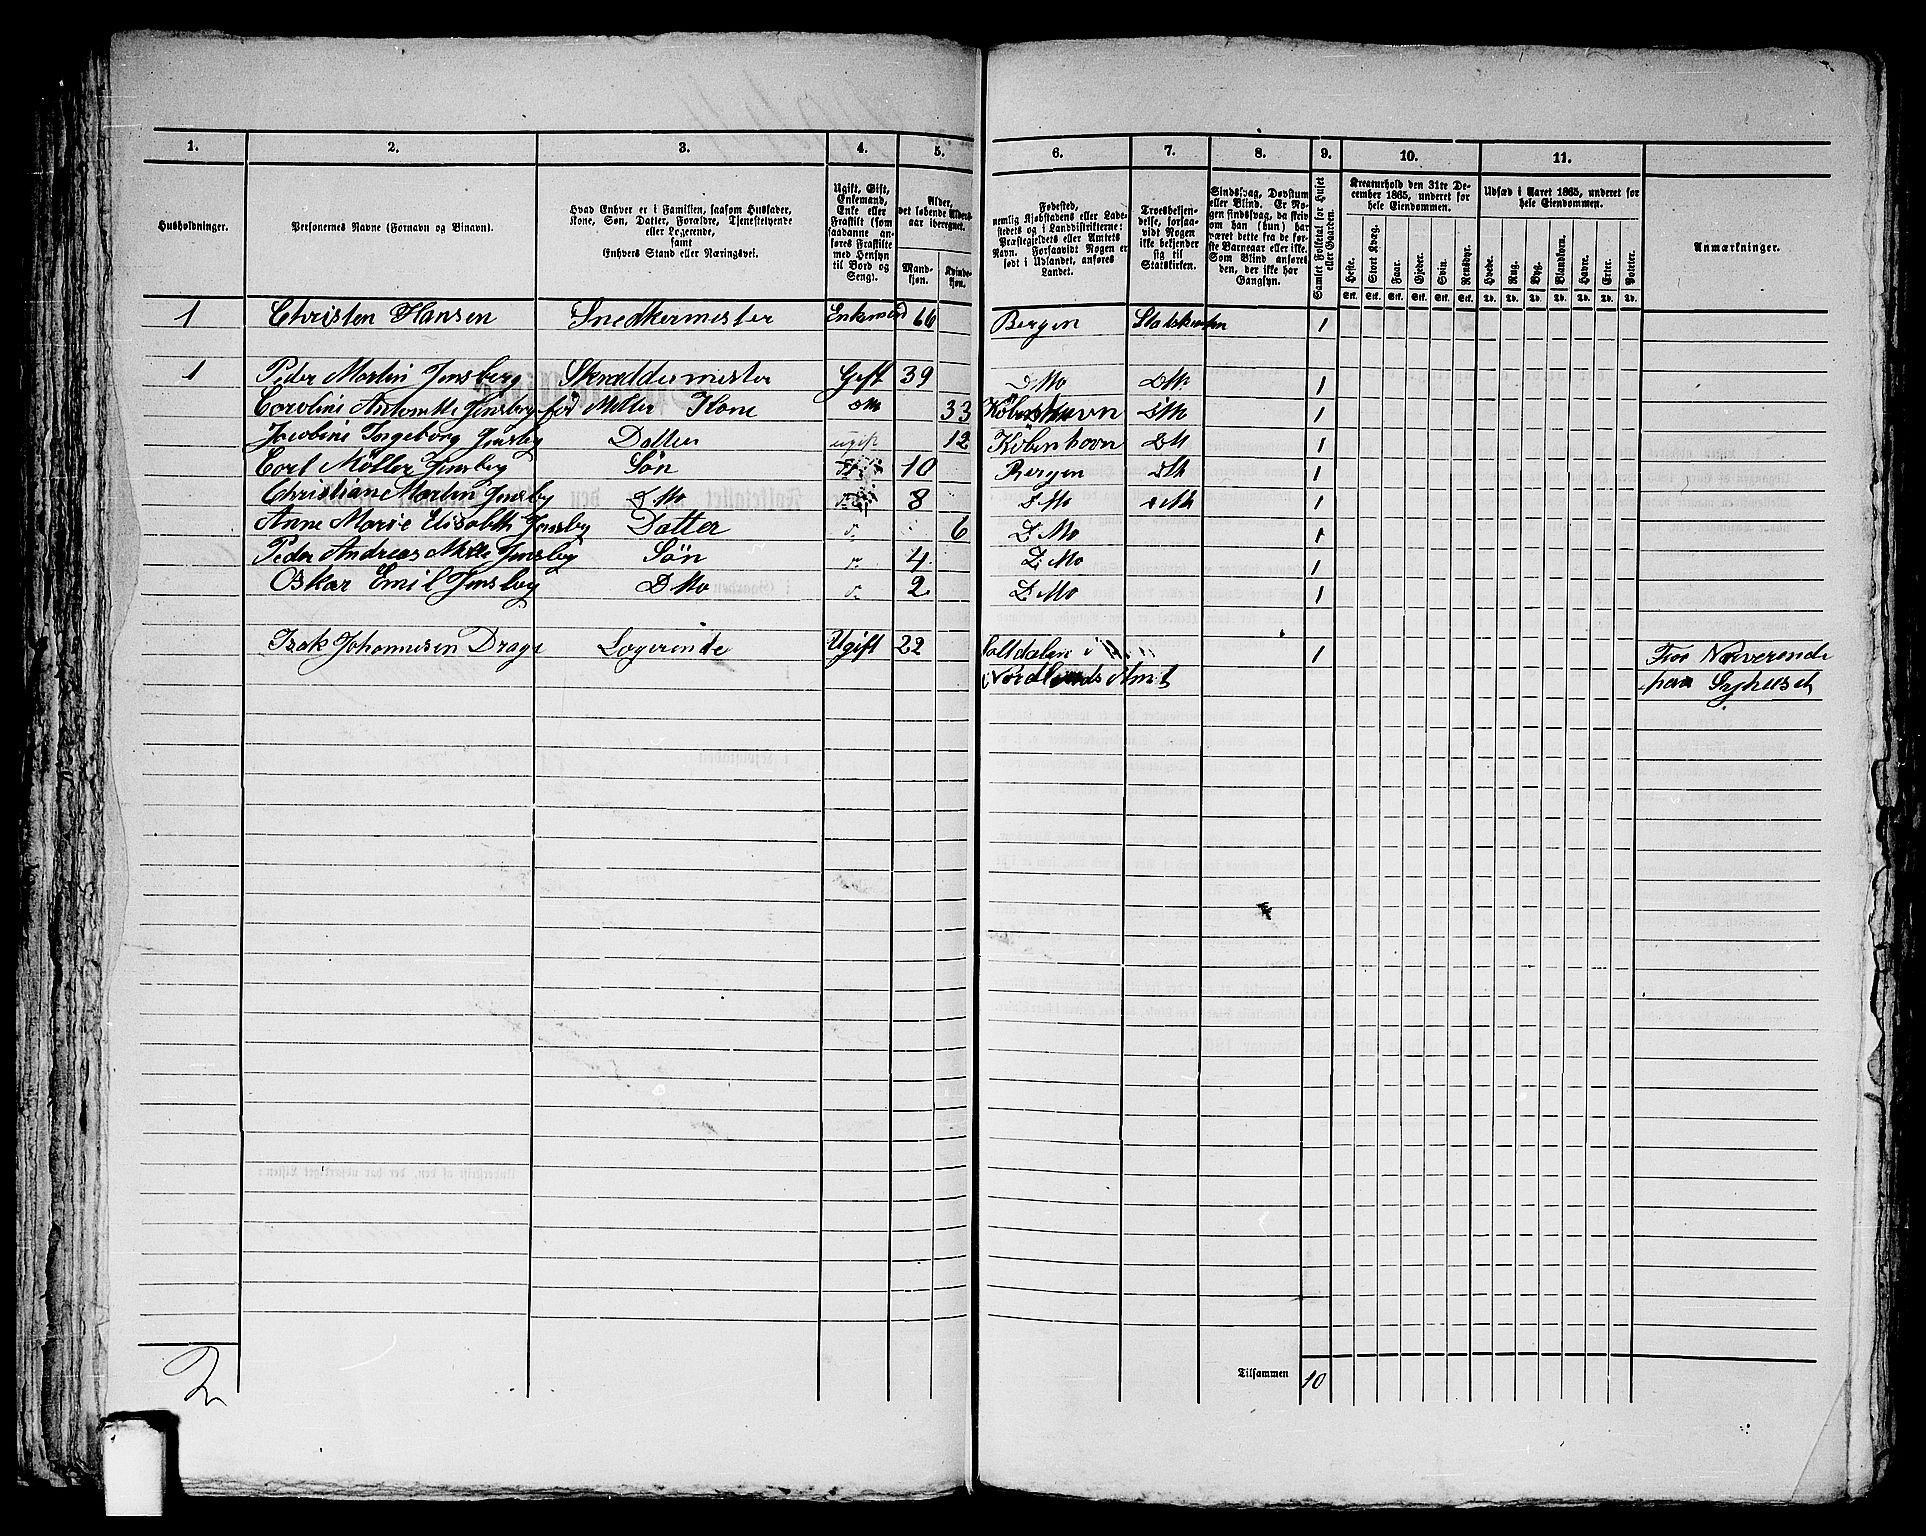 1. 2. 3. 4. 5. 6. 7. 8. 9. 10. 11.
Husholdninger.
Personernes Navne (Fornavn og Binavn).
Hvad Enhver er i Familien, saasom Husfader,
Kone, Søn, Datter, Forældre, Tjenestetyende
eller Logerende,
samt
Enhvers Stand eller Næringsvei.
Ugift, Gift,
Enkemand,
Enke eller
Fraskilt (som
saadanne an-
føres Fraskilte
med Hensyn
til Bord og
Seng).
Alder,
det løbende Alders-
aar iberegnet.
Mand-
kjøn.
Kvinde-
kjøn.
Fødested,
nemlig Kjøbstadens eller Lade-
stedets og i Landdistrikterne:
Præstegjeldets eller Amtets
Navn. Forsaavidt Nogen er
født i Udlandet, anføres
Landet.
Troesbekjen-
delse, forsaa-
vidt Nogen
ikke bekjender
sig til
Statskirken.
Sindssvag, Døvstum
eller Blind. Er No-
gen sindssvag, da skriv
om han (hun) har
været dette fra de før-
ste Barneaar eller ikke.
Som Blind anføres
den, der ikke har
Gangsyn.
Samlet Folketal for Huset
eller Gaarden.
Kreaturhold den 31te De-
cember 1865, underet for
hele Eiendommen.
Heste. Stort Kvæg. Faar. Gjeder. Svin. Rensdyr.
Stk. Stk. Stk. Stk. Stk. Stk.
Udsæd i Aaret 1865, underet for
hele Eiendommen.
Hvede. Rug. Byg. Blandkorn. Havre. Erter. Poteter.
Td. Td. Td. Td. Td. Td. Td.
Anmærkninger.
1 Christen Hansen Snedkermester Enkemand 66 Bergen Statskirken 1
1 Peder Martin Jensberg Skreddermester Gift 39 D Mo D Mo 1
Caroline Antonette Jensberg fød Møller Kone D Mo 33 Kiøbenhavn D Mo 1
Jacobine Ingeborg Jensberg Datter ugift 12 Kiøbenhavn D Mo 1
Carl Møller Jensberg Søn 10 Bergen D Mo 1
Christian Martin Jensberg D Mo 8 D Mo D Mo 1
Anne Marie Elisabeth Jensberg Datter 6 D Mo 1
Peder Andreas Jensberg Søn 4 D Mo 1
Oskar Emil Jensberg D Mo 2 D Mo 1
Isak Johannesen Drage Logerende Ugift 22 Saltdalen i 1 Nærverende
Nordlands Amt paa Sygehuset
2
Tilsammen 10